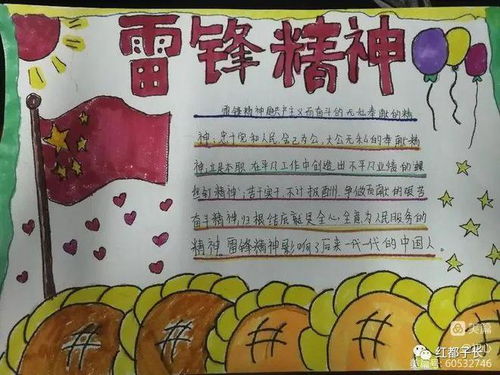 雷锋精神
雷锋精神是共产主义而奋斗的无私奉献的精
神，忠于党和人民舍己为公，大公无私的奉献精
神，立足本职、在平凡工作中创造出不平凡业绩的螺
丝钉精神，苦干实干，不计报酬，争做贡献的艰苦
奋斗精神，归根结底就是全心全意为人民服务的
精神，雷锋精神影响了后来一代一代的中国人。
美篇
红都学长
美篇号：60532746